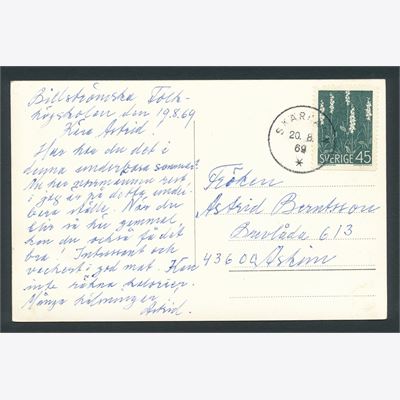 Billströmska Folk-
högskolan den 19.8.69
Kära Astrid.
Hur har du det i
denna underbara sommar?
Nu har jag på detta
ställe. När du
blir så här gammal
kan du också få det
bra! Intressant och
vackert i god mat. Kan
inte räkna kalorier.
Många hälsningar
Astrid.
SKÄRH
20. 8.
69
SVERIGE 45
Fröken
Astrid Berntsson
Brevlåda 613
43600 Askim